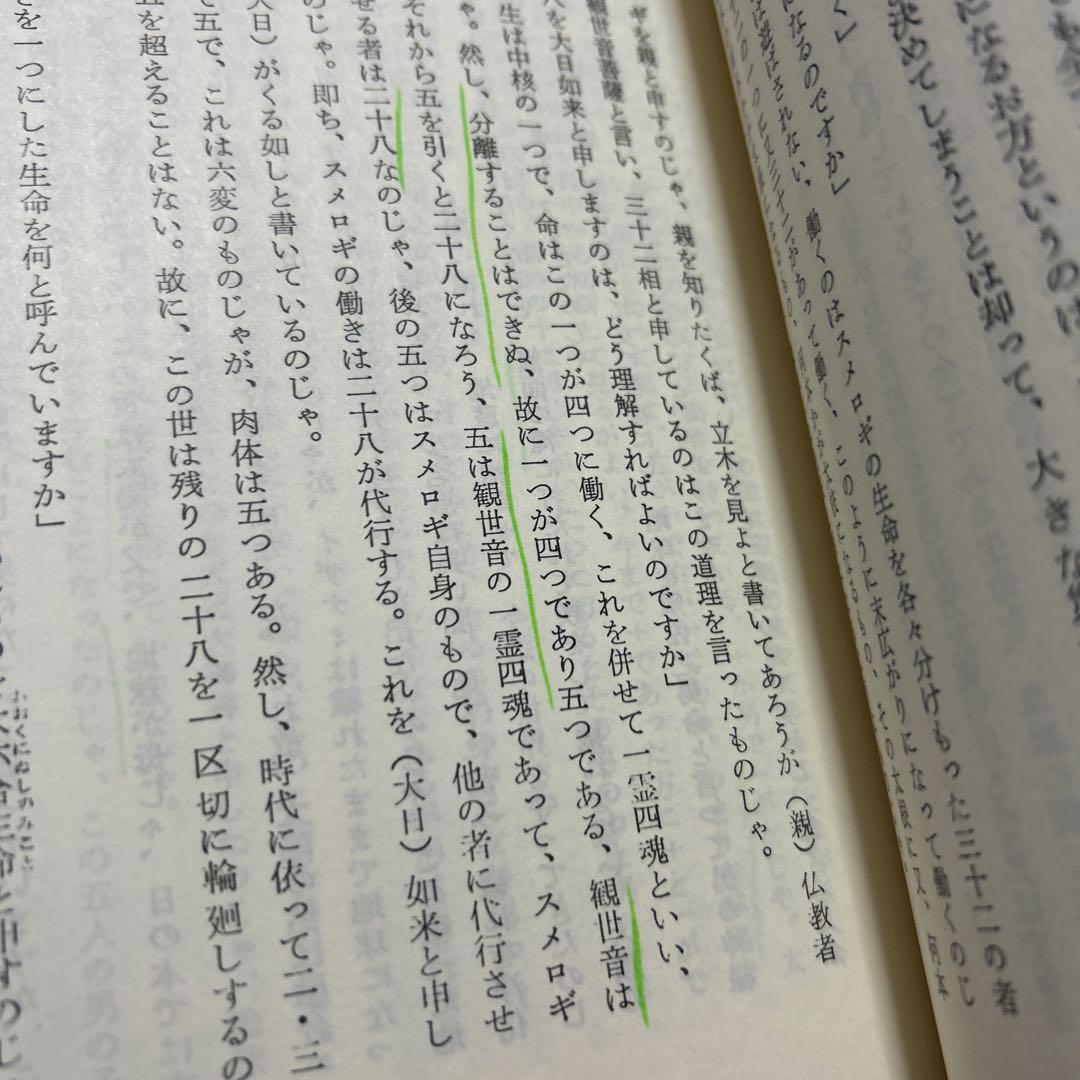 になるお方というのは
決めてしまうことは却って、大きな
く」
になるのですか」
働くのはスメロギの生命を各々分けもった三十二の者
があって働く、このように末広がりになって働くのじ
ギを親と申すのじゃ、親を知りたくば、立木を見よと書いてあろうが（親）仏教者
観世音菩薩と言い、三十二相と申しているのはこの道理を言ったものじゃ。
八を大日如来と申しますのは、どう理解すればよいのですか」
生は中核の一つで、命はこの一つが四つに働く、これを併せて一霊四魂といい、
ゃ。然し、分離することはできぬ、故に一つが四つであり五つである、観世音は
それから五を引くと二十八になろう、五は観世音の一霊四魂であって、スメロギ
せる者は二十八なのじゃ、後の五つはスメロギ自身のもので、他の者に代行させ
のじゃ。即ち、スメロギの働きは二十八が代行する。これを（大日）如来と申し
日）がくる如しと書いているのじゃ。
で五で、これは六変のものじゃが、肉体は五つある。然し、時代に依って二・三
を超えることはない。故に、この世は残りの二十八を一区切に輪廻するの
を一つにした生命を何と呼んでいますか」
生命と申すのじ